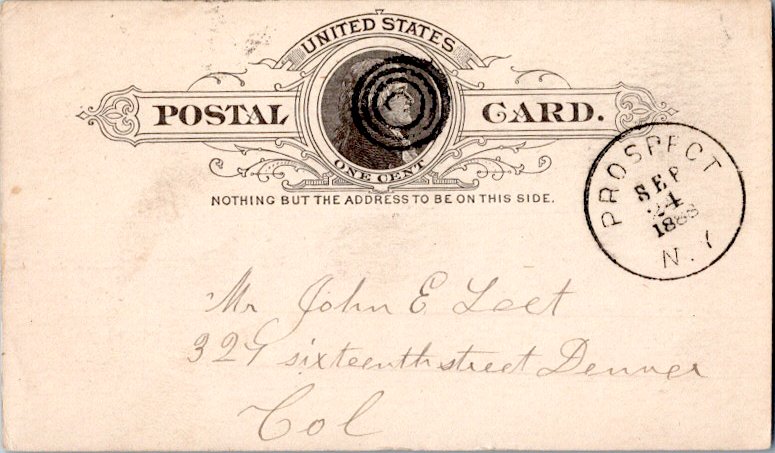 UNITED STATES
POSTAL CARD.
ONE CENT
NOTHING BUT THE ADDRESS TO BE ON THIS SIDE.
PROSPECT
SEP
24
1888
N.Y
Mr John E Leet
329 sixteenth street Denver
Col